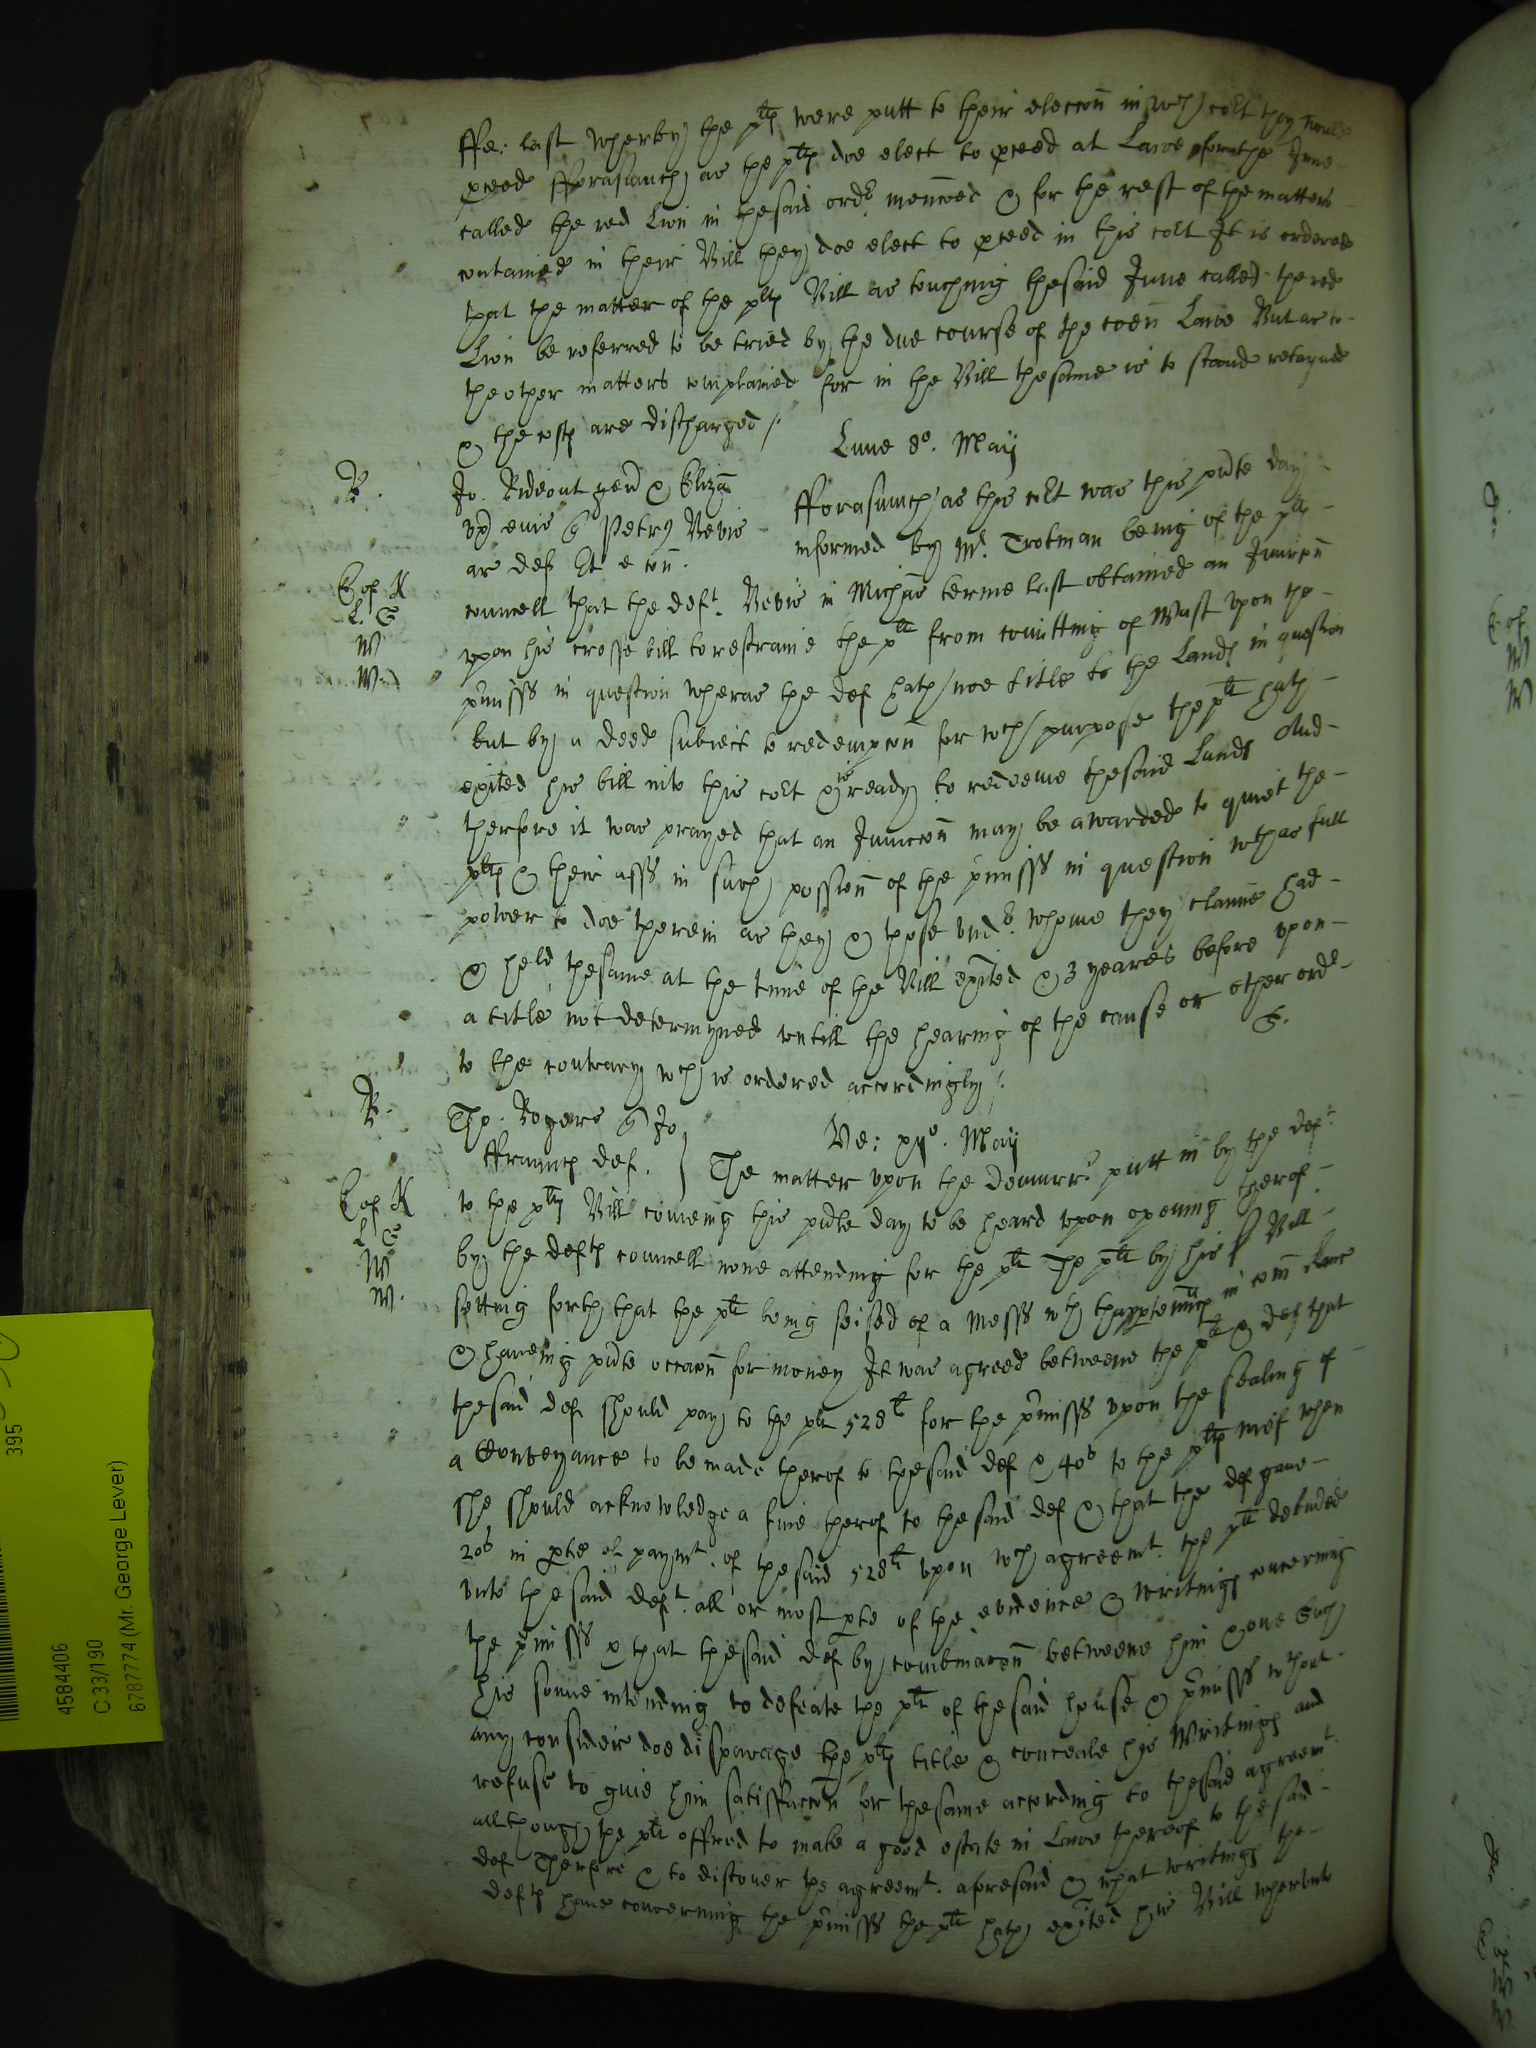 ffe: last wherby the plts were putt to their eleccon in wch cort they would
pceed fforasmuch as the plts doe elect to pceed at Lawe for the Inne
called the red Lion in thesaid ordr menconed & for the rest of the matters
contained in their Bill they doe elect to pceed in this cort It is ordered
that the matter of the plts Bill as touching thesaid Inne called the red
Lion be referred to be tried by the due course of the coen Lawe But as to
the other matters complained for in the Bill thesame is to stand retayned
& the costs are discharged /.
Lune 8o. Maij
R.
Jo. Rideout gen & Eliza
ux eius & Petrus Bevis
ar def Et e con.
fforasmuch as this cort was this pnte day
informed by Mr. Trotman being of the plts
councell that the deft. Bevis in Michas terme last obtained an Iniuncon
upon his crosse bill to restraine the plt from comitting of Wast upon the
pmisss in question wheras the def hath noe title to the Lands in question
but by a deed subiect to redempcon for wch purpose the plt hath
exited his bill into this cort & is ready to redeeme thesaid Lands And
therfore it was prayed that an Iniuncon may be awarded to quiet the
plts & their asss in such possion of the pmisss in question wth as full
power to doe therein as they & those undr. whome they claime had
& held thesame at the time of the Bill exited & 3 yeares before upon
a title not determyned untill the hearing of the cause or other ordr
to the contrary wch is ordered accordingly /.
E.
Cop K
L. E
W
W
R.
Tho. Rogers & Jo
ffraunces def.
Ve: xijo. Maij
The matter upon the demurrr putt in by the deft
to the plts Bill comeing this pnte day to be heard upon opening therof
by the defts councell none attending for the plt The plt by his Bill
setting forth that the plt being seised of a Messs wth thapptenncs in com
& haveing pnte occaon for money It was agreed betweene the plt & def that
thesaid def should pay to the plt 528li for the pmisss upon the sealing of
a Conveyance to be made therof to thesaid def & 40s to the plts wief when
she should acknowledge a fine therof to the said def & that the def gave
20s in pte of paymt. of thesaid 528li upon wch agreemt. the plt delivered
unto the said deft. all or most pte of the evidence & writings concerning
the pmisss & that thesaid def by combinacon betweene him & one
his sonne intending to defeate the plt of thesaid house & pmisss wthout
any consider doe disparage the plts title & conceale his Writings and
refuse to give him satisfaccon for thesame according to thesaid agreemt.
allthough the plt offred to make a good estate in Lawe thereof to thesaid
def Therfore & to discover the agreemt. aforesaid & what writings the
defts have concerning the pmisss the plt hath exited his Bill wherunto
Cop K
L E
W
W.
395
4584406
C 33/190
6787774 (Mr. George Lever)